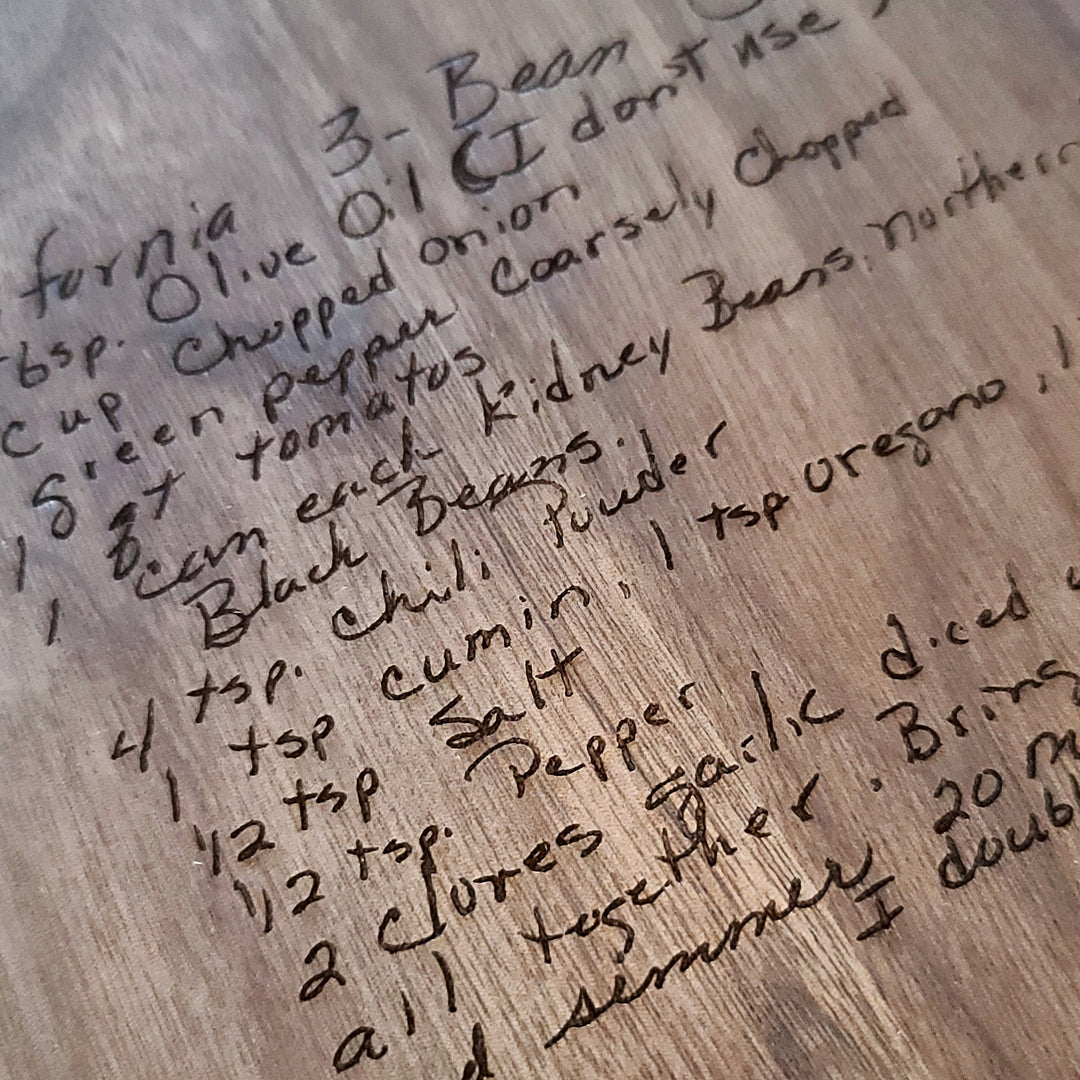 fornia 3-Bean
tbsp. Olive Oil (I don't use,
cup chopped onion
1 green pepper coarsely chopped
1 qt tomatos
can each kidney Beans, northern
Black Beans.
4 tsp. chili Powder
1 tsp cumin, 1 tsp oregano, 1
1/2 tsp Salt
1/2 tsp. Pepper
2 cloves garlic diced
all together. Bring
simmer 20 m
I doubl